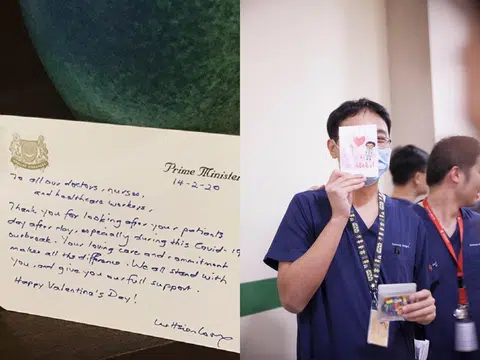 Prime Minister
14-2-20
To all our doctors, nurses,
and healthcare workers,
Thank you for looking after your patients
day after day, especially during this Covid-19
outbreak. Your loving care and commitment
makes all the difference. We all stand with
you, and give you our full support.
Happy Valentine's Day!